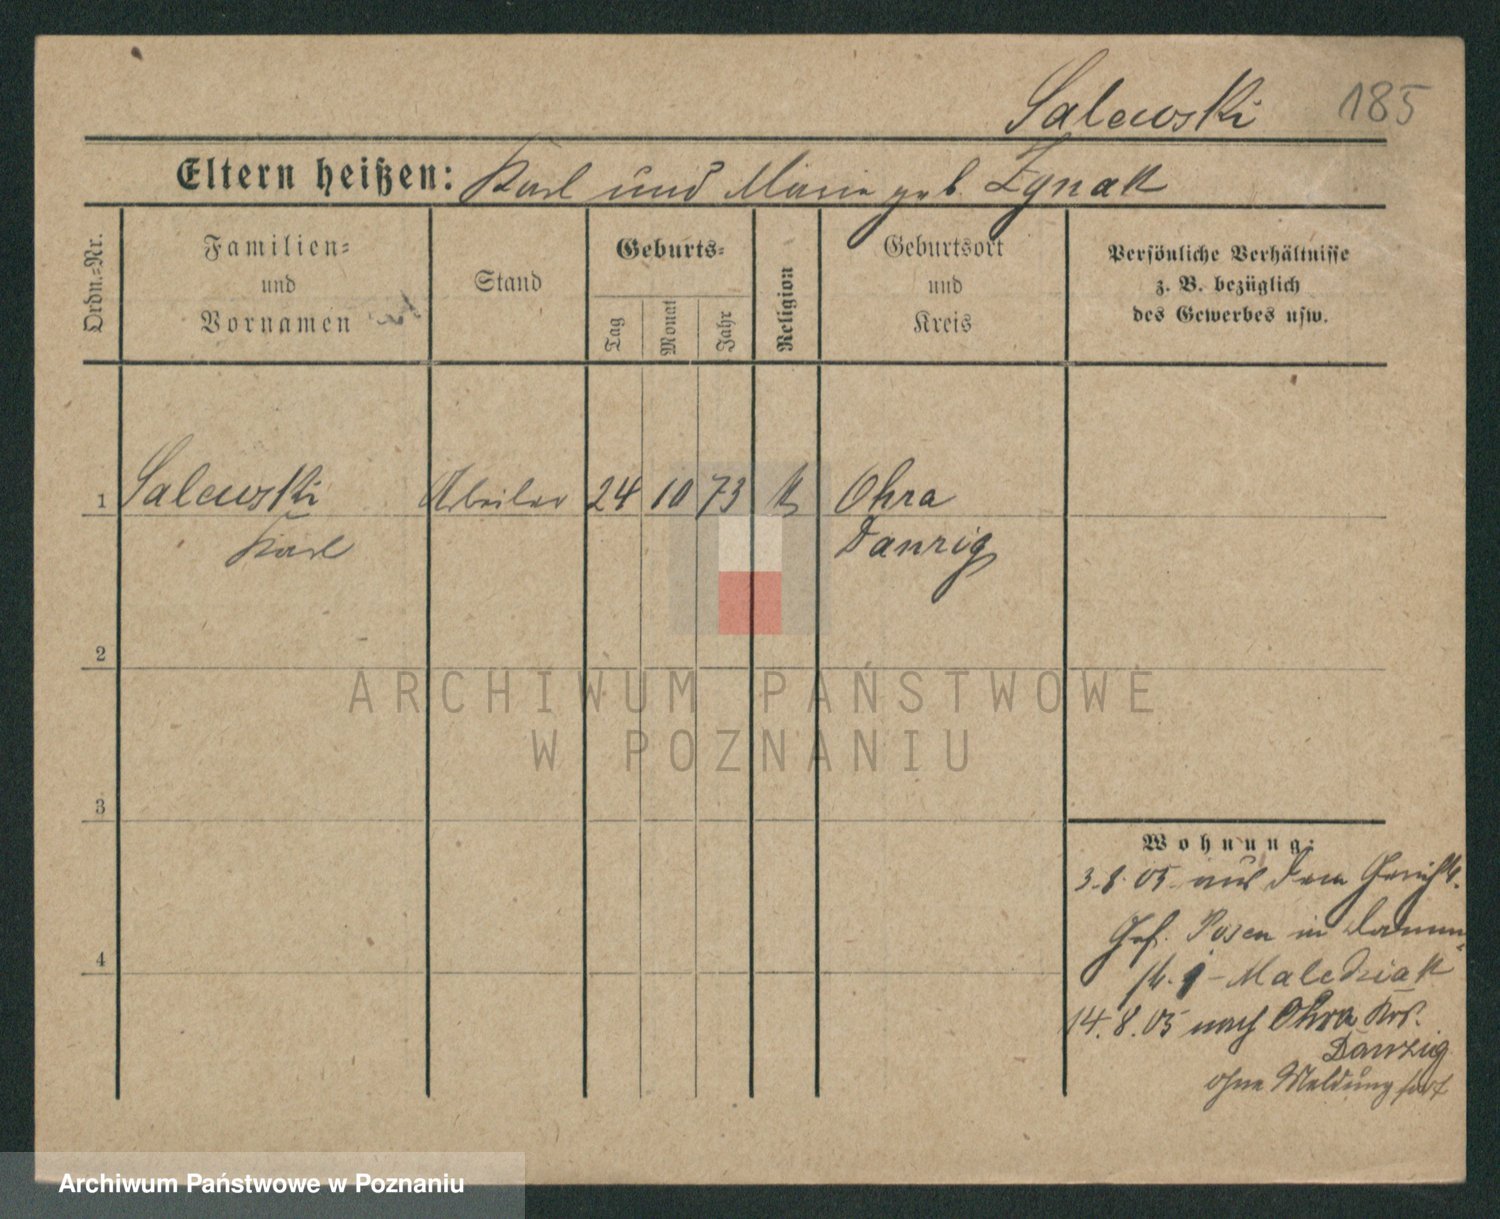 Salewski 185
Eltern heißen: Karl und Marie geb. Zgnak
Ordn.=Nr.
Familien=
und
Vornamen
Stand
Geburts=
Tag
Monat
Jahr
Religion
Geburtsort
und
Kreis
Persönliche Verhältnisse
z. B. bezüglich
des Gewerbes usw.
1 Salewski Arbeiter 24 10 73 k Ohra
Karl Danzig
2
ARCHIWUM PAŃSTWOWE
W POZNANIU
3
Wohnung:
3.8.05 aus dem Gerichts.
Gef. Posen in
4
- Maledziak
14.8.05 nach Ohra Krs.
Danzig
ohne Meldung fort
Archiwum Państwowe w Poznaniu